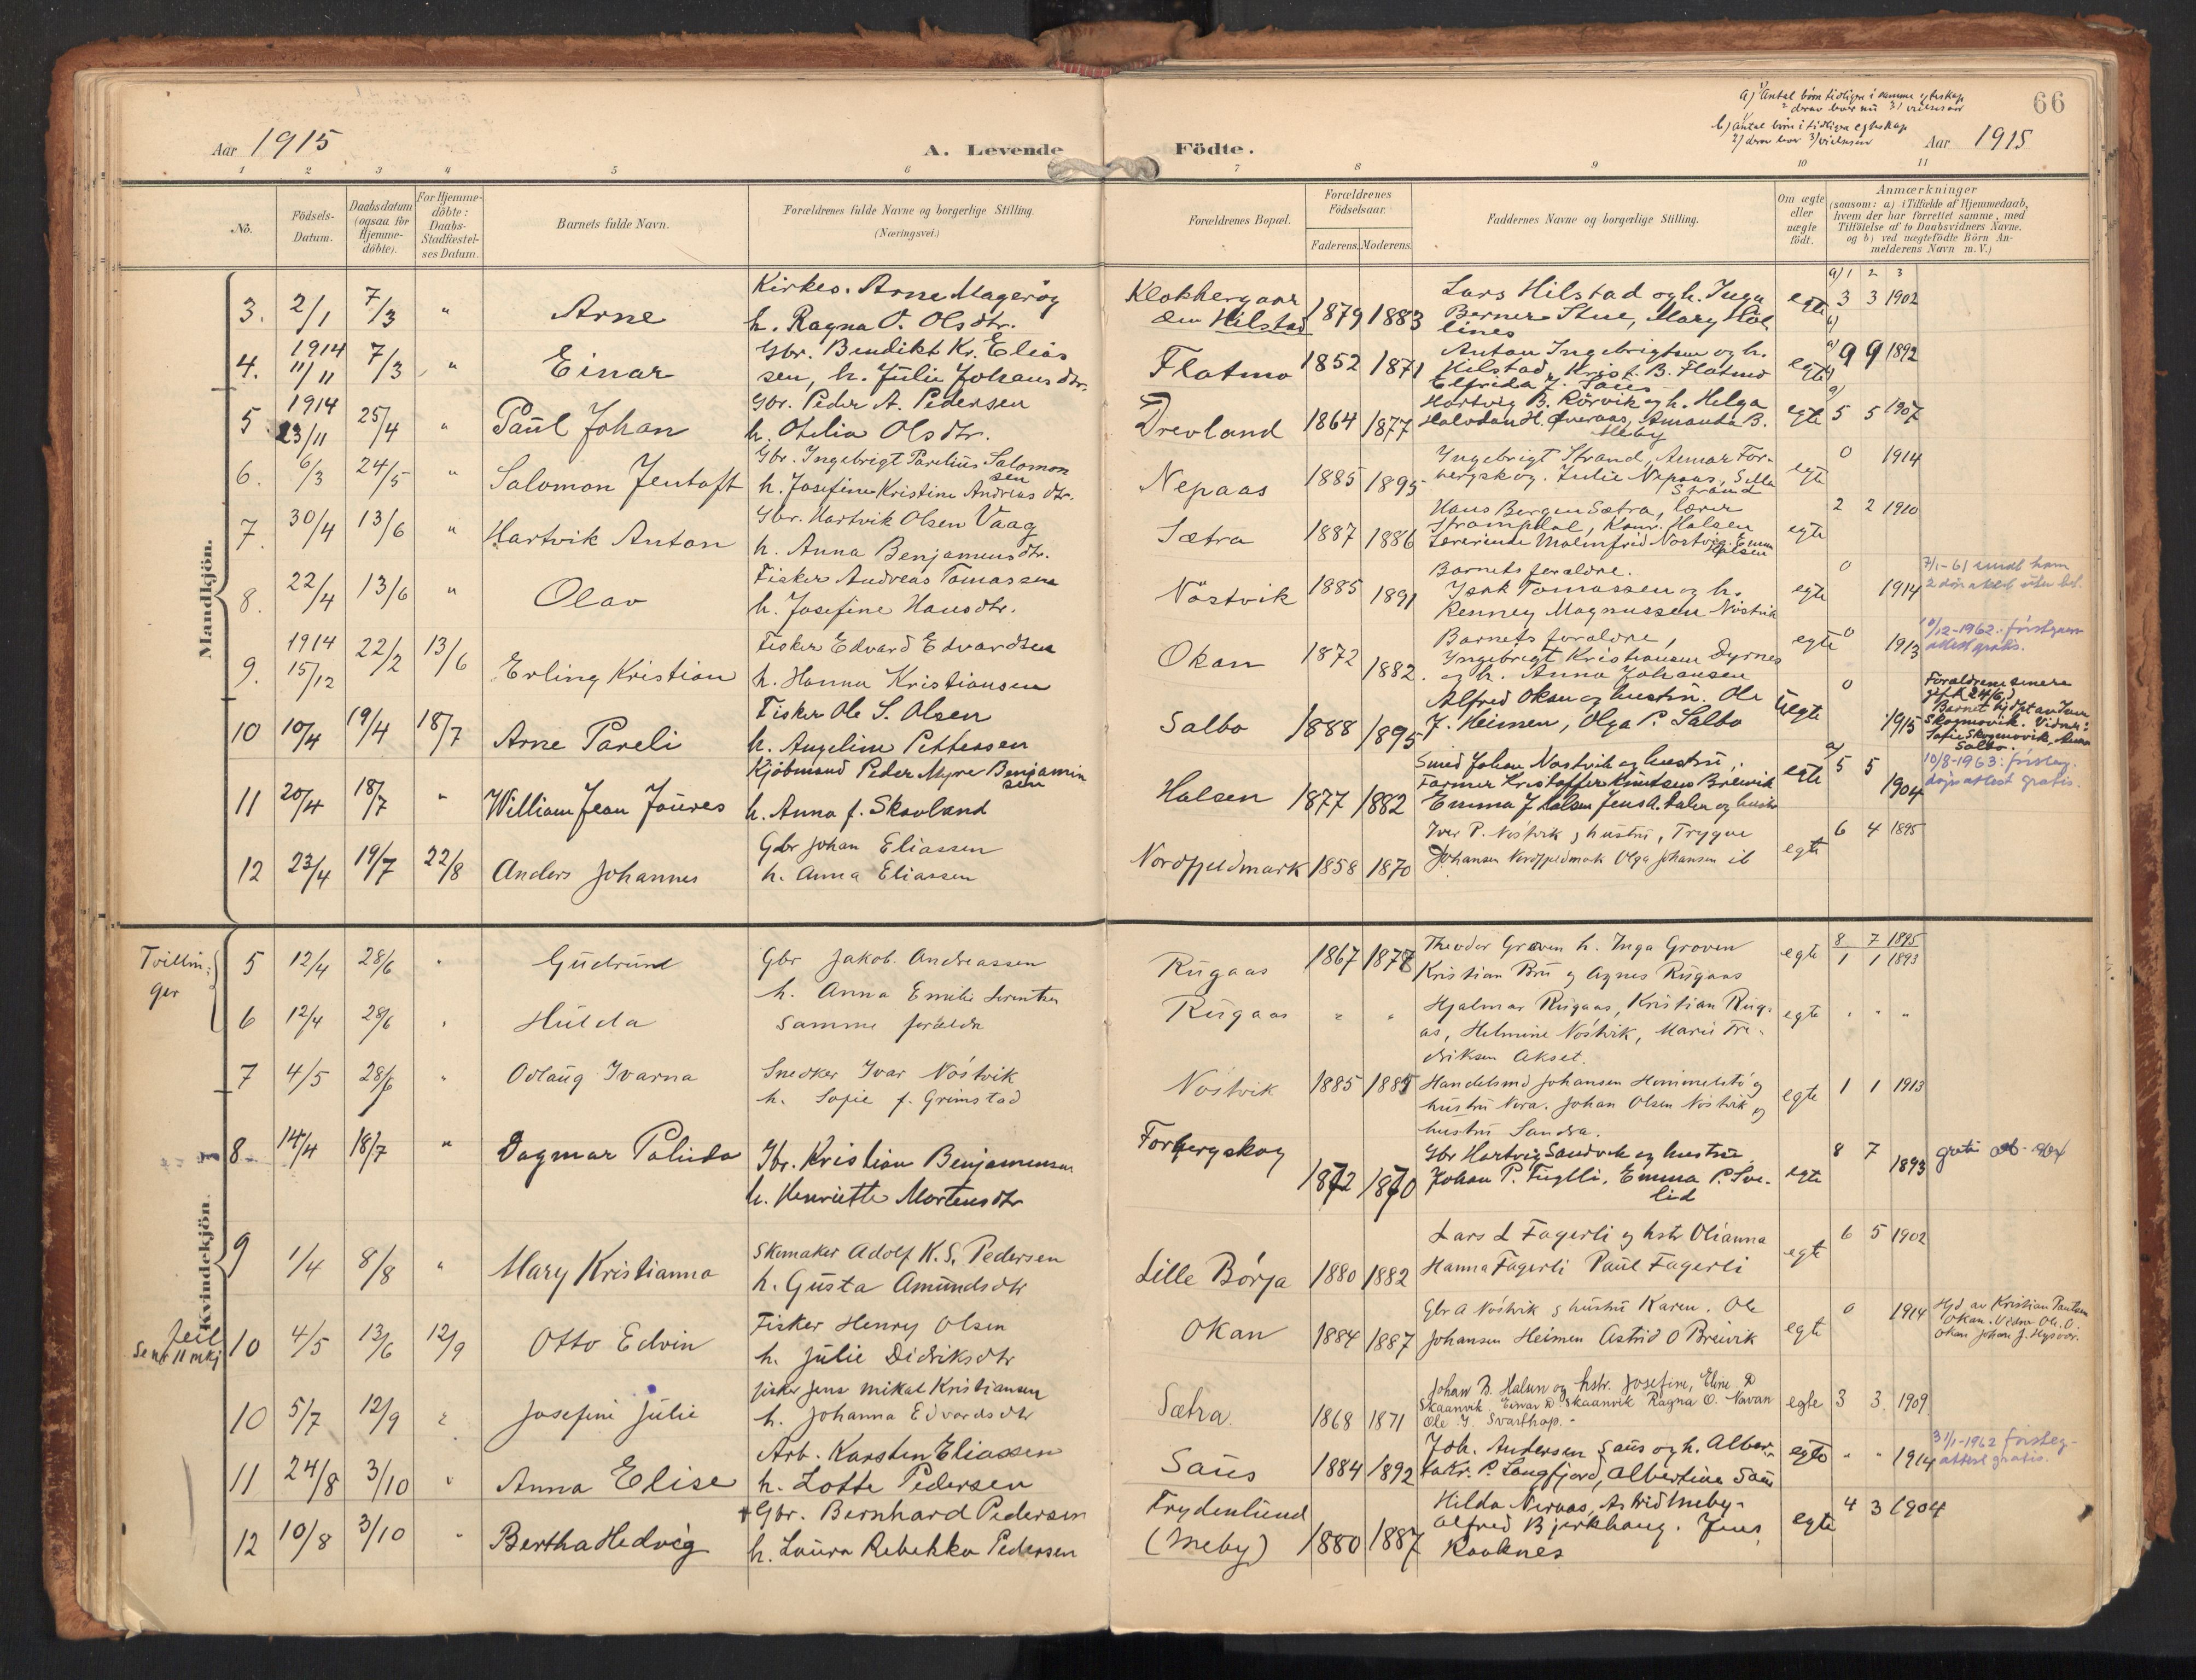 a) 1) Antal børn tidligere i samme egteskap
2 derav lever nu 3) vielsesaar
b) Antal børn i tidligere egteskap
2) derav lever 3) vielsesaar
66
Aar 1915
A. Levende
Födte.
Aar 1915
1 2 3 4 5 6 7 8 9 10 11
No.
Födsels-
Datum.
Daabsdatum
(ogsaa för
Hjemme-
döbte).
For Hjemme-
döbte:
Daabs-
Stadfæstel-
ses Datum.
Barnets fulde Navn.
Forældrenes fulde Navne og borgerlige Stilling.
(Næringsvei.)
Forældrenes Bopæl.
Forældrenes
Födselsaar.
Faderens. Moderens.
Faddernes Navne og borgerlige Stilling.
Om ægte
eller
uægte
födt.
Anmærkninger
(saasom: a.) i Tilfælde af Hjemmedaab,
hvem der har forrettet samme, med
Tilföielse af to Daabsvidners Navne.
og b) ved uægtefödte Börn An-
melderens Navn m. V.)
Mandkjön.
3. 2/1 7/3 " Arne
Kirkes. Arne Magerøy
h. Ragna O. Olsdtr.
Klokkergaar
den Hilstad
1879 1883
Lars Hilstad og h. Inga
Berner Stue, Mary
egte
a) 1 2 3
3 3 1902
b)
4. 1914
11/11 7/3 " Einar
Gbr. Bendikt Kr. Elias
sen, h. Julie Johansdtr.
Flatmo 1852 1871
Anton Ingebrigtsen og h.
Hilstad, Krist. B. Flatmo
Elfrida J. Saus
egte
a) 9 9 1892
5 1914
23/11 25/4 " Paul Johan
Gbr. Peder A. Pedersen
h. Otelia Olsdtr.
Drevland 1864 1877
Hartvig B. Rörvik og h. Helga
Halvdan H. Øveraas, Amanda B.
Meby
egte
a) 5 5 1907
6. 6/3 24/5 " Salomon Jentoft
Gbr. Ingebrigt Parelius Salomon
sen
h. Josefine Kristine Andreasdtr.
Nepaas 1885 1895
Ingebrigt Strand, Annar For-
bergskog. Julie Nepaas,
Strand
egte
0 1914
7. 30/4 13/6 " Hartvik Anton
Gbr. Hartvik Olsen Vaag
h. Anna Benjamensdtr.
Sætra 1887 1886
Hans Bergen Sætra, lærer
Strompdal, Konr. Halsen
Lærerinde Malmfrid Nøstvig. Emma
Halsen
egte
2 2 1910
8. 22/4 13/6 " Olav
Fisker Andreas Tomassen
h. Josefine Hansdtr.
Nöstvik 1885 1891
Barnets foraldre.
Isak Tomassen og h.
Renney Magnussen Nöstvik
egte
0 1914
9. 1914
15/12 22/2 13/6 Erling Kristian
Fisker Edvard Edvardsen
h. Hanna Kristiansen
Okan 1872 1882
Barnets foraldre,
Ingebrigt Kristiansen Dyrnes
og h. Anna Johansen
egte
0 1913
10/12-1962: förstegangs
attest gratis.
10 10/4 19/4 18/7 Arne Pareli
Fisker Ole S. Olsen
h. Angeline Pettersen
Salbo 1888 1895
Alfred Okan og hustru. Ole
J. Heimen, Olga P. Salbo
uegte
0 1915
Foraldrene senere
gift (24/6)
Barnet hjdøpt av
Skogmovik. Vidner:
Sofie Skogmovik, Anna
Salbo.
11 20/4 18/7 " William Jean Jaures
Kjöbmand Peder Myre Benjamin
sen
h. Anna f. Skavland
Halsen 1877 1882
Smed Johan Nøstvik og hustru,
Farmer Kristoffer Knutsen Breivik
Emma J Halsen Jens A. Dalen og hustru
egte
a) 5 5 1904
10/8-1963: försteg.
attest gratis.
12 23/4 19/7 22/8 Anders Johannes
Gbr Johan Eliassen
h. Anna Eliassen
Nordfjeldmark 1858 1870
Iver P. Nöstvik g hustru, Trygve
Johansen Nordfjeldmark Olga Johansen ib
egte
6 4 1895
Kvindekjön.
Tvillin-
ger
5 12/4 28/6 " Gudrund
Gbr Jakob Andreassen
h. Anna Emilie Lorentsen
Rugaas 1867 1877
Theodor Groven h. Inga Groven
Kristian Bru g Agnes Rugaas
egte
8 7 1895
1 1 1893
6 12/4 28/6 " Hulda
Samme forældre
Rugaas " "
Hjalmar Rugaas, Kristian Ruga-
as, Helmine Nöstvik, Marie Fre-
driksen Akset.
egte " " "
7 4/5 28/6 " Odlaug Ivarna
Snedker Ivar Nöstvik
h. Sofie f. Grimstad
Nöstvik 1885 1885
Handelsmd Johansen Hommelstö g
hustru Nora. Johan Olsen Nöstvik g
hustru Sandra.
egte
1 1 1913
8 14/4 18/7 " Dagmar Palida
Gbr. Kristian Benjamensen
h. Henriette Mortensdtr
Forbergskog
1872 1870
Gbr Hartvig Sandvik og hustru
Johan P. Fuglli, Emma P. Sve-
lid
egte
8 7 1893
9 1/4 8/8 " Mary Kristianna
Skomaker Adolf K. S. Pedersen
h. Gusta Amundsdtr
Lille Börja 1880 1882
Lars L Fagerli g hstr Olianna
Hanna Fagerli Paul Fagerli
egte
6 5 1902
feil
se nr 11 mkj
10 4/5 13/6 12/9 Otto Edvin
Fisker Henry Olsen
h. Julie Didriksdtr
Okan 1884 1887
Gbr A Nöstvik g hustru Karen. Ole
Johansen Heimen Astrid O Breivik
egte
0 1914
Hjd. av Kristian Paulsen
Okan. Vidner Ole O.
Okan Johan J. Hysvær.
10 5/7 12/9 " Josefine Julie
fisker Jens Mikal Kristiansen
h. Johanna Edvardsdtr
Sætra. 1868 1871
Johan B. Halsen og hstr. Josefine, Eline D
Skaanvik. Einar D Skaanvik Ragna O. Navan
Ole J. Svarthop.
egte
3 3. 1909
11 24/8 3/10 " Anna Elise
Arb. Karsten Eliassen
h. Lotte Pedersen
Saus 1884 1892
Joh. Andersen Saus og h. Alber-
ta Kr. P. Langfjord, Albertine Saus
egte " " 1914
31/1-1962 försteg-
attest gratis.
12 10/8 3/10 " Bertha Hedvig
Gbr. Bernhard Pedersen
h. Laura Rebekka Pedersen
Frydenlund
(Meby) 1880 1887
Hilda Neraas, Astrid Meby-
Alfred Bjerkhaug. Jens
Kvaknes
egte
4 3 1904